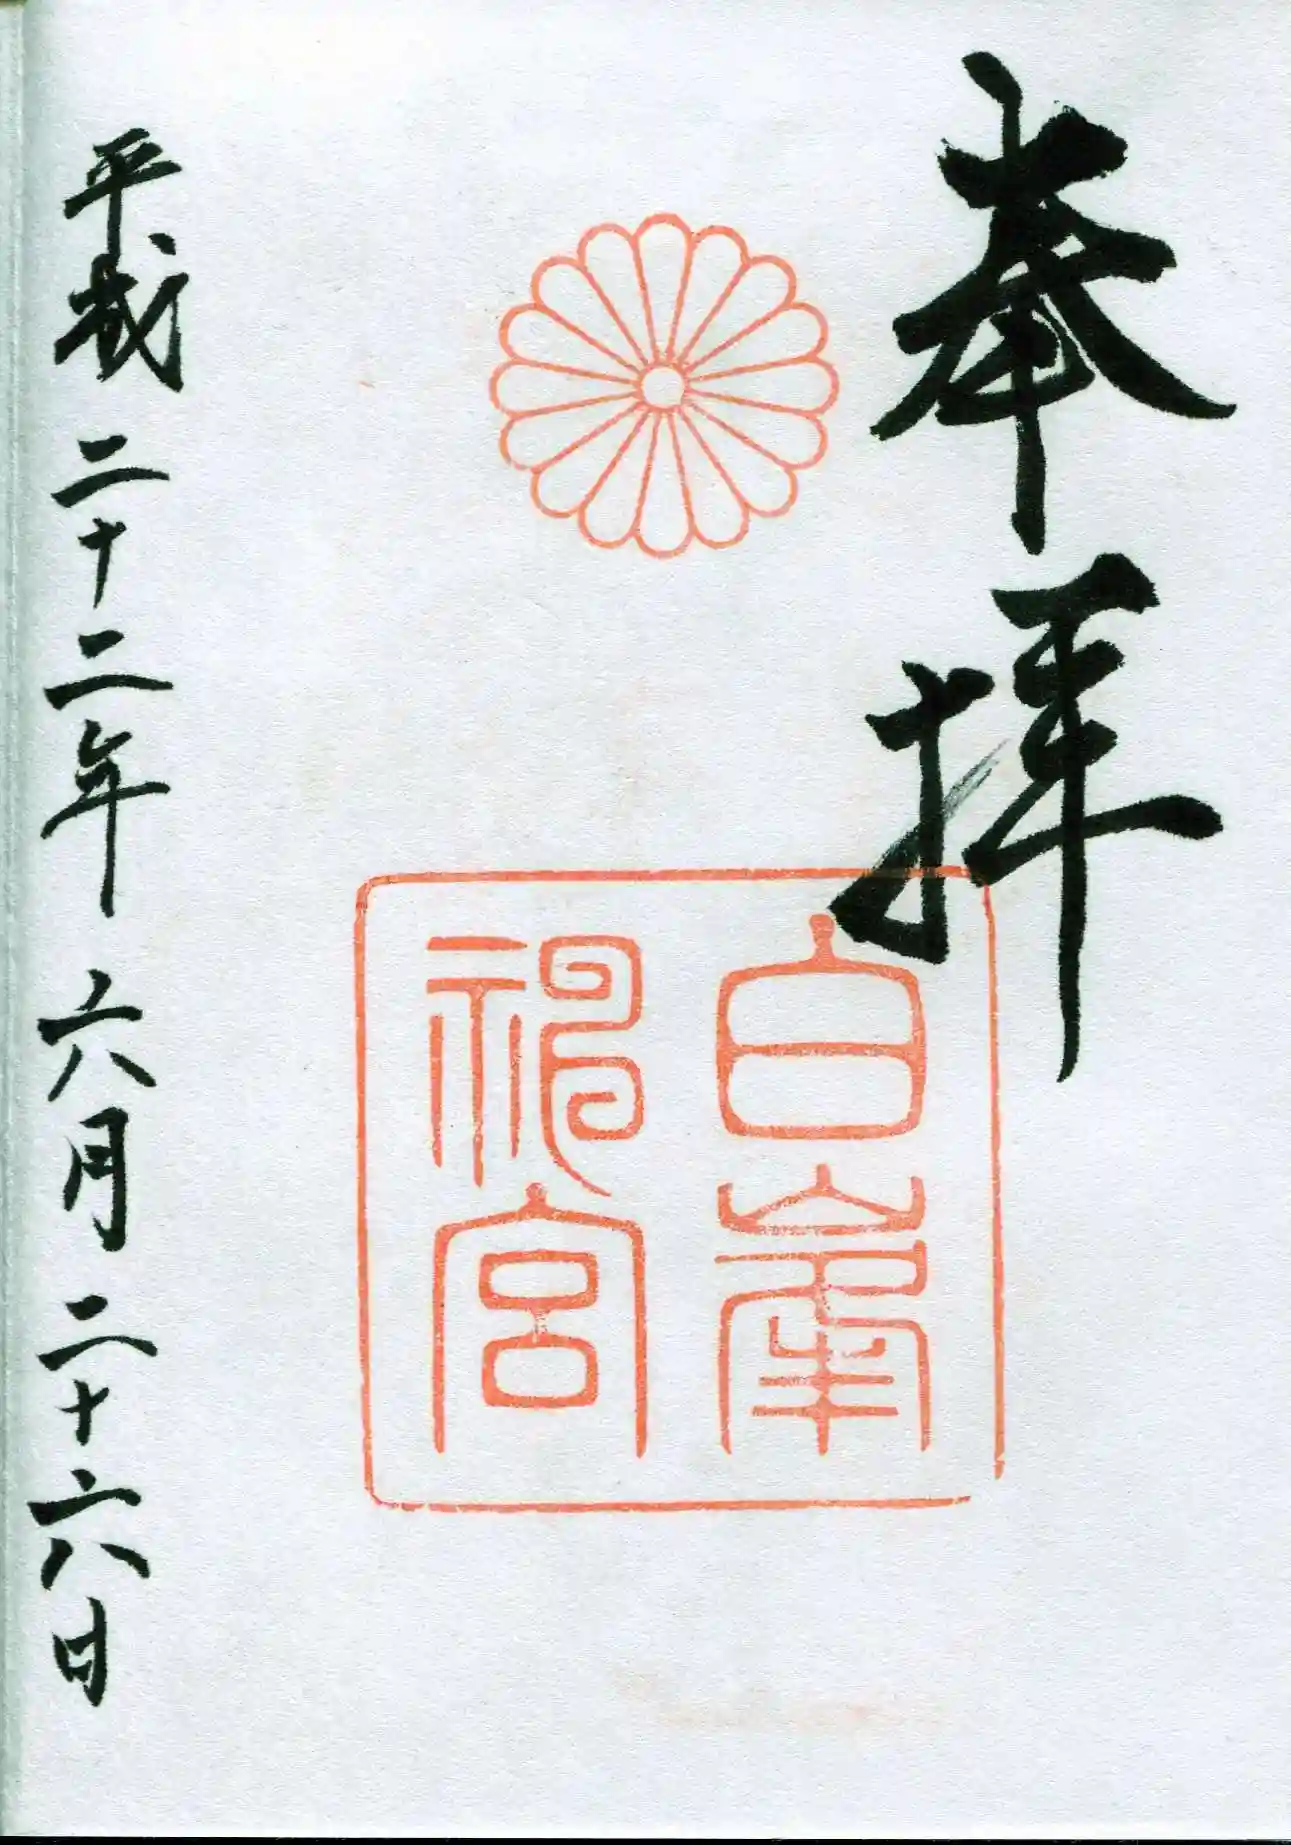 奉拝
白峯
神宮
平成二十二年 六月 二十六日